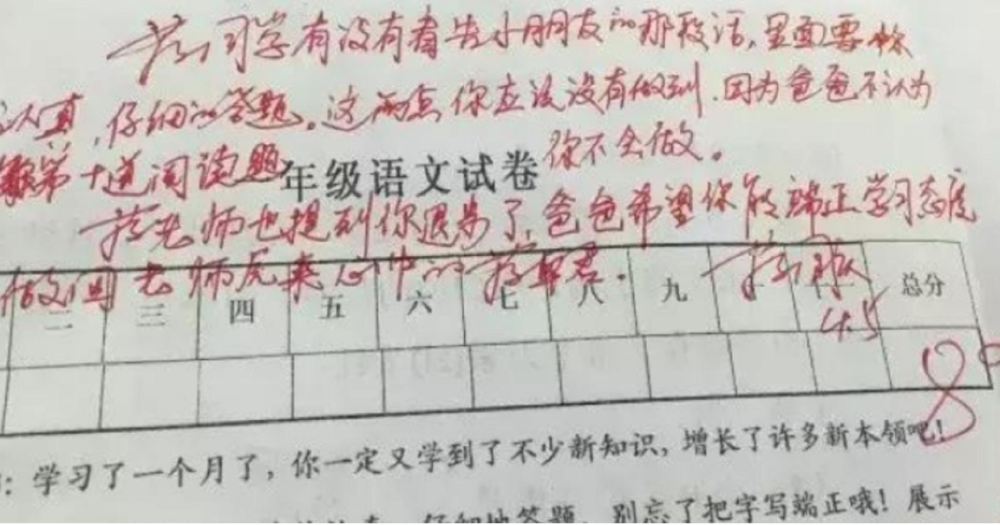 蒋同学有没有看告小朋友的那段话,里面要你
认真,仔细的答题。这两点你应该没有做到.因为爸爸不认为
第十道阅读题 你不会做。
年级语文试卷
蒋老师也提到你退步了,爸爸希望你能端正学习态度
做回去师虎来心中的蒋
二 三 四 五 六 七 八 九 十 十一 总分
4.5
8
:学习了一个月了,你一定又学到了不少新知识,增长了许多新本领吧!
仔细地答题,别忘了把字写端正哦!展示